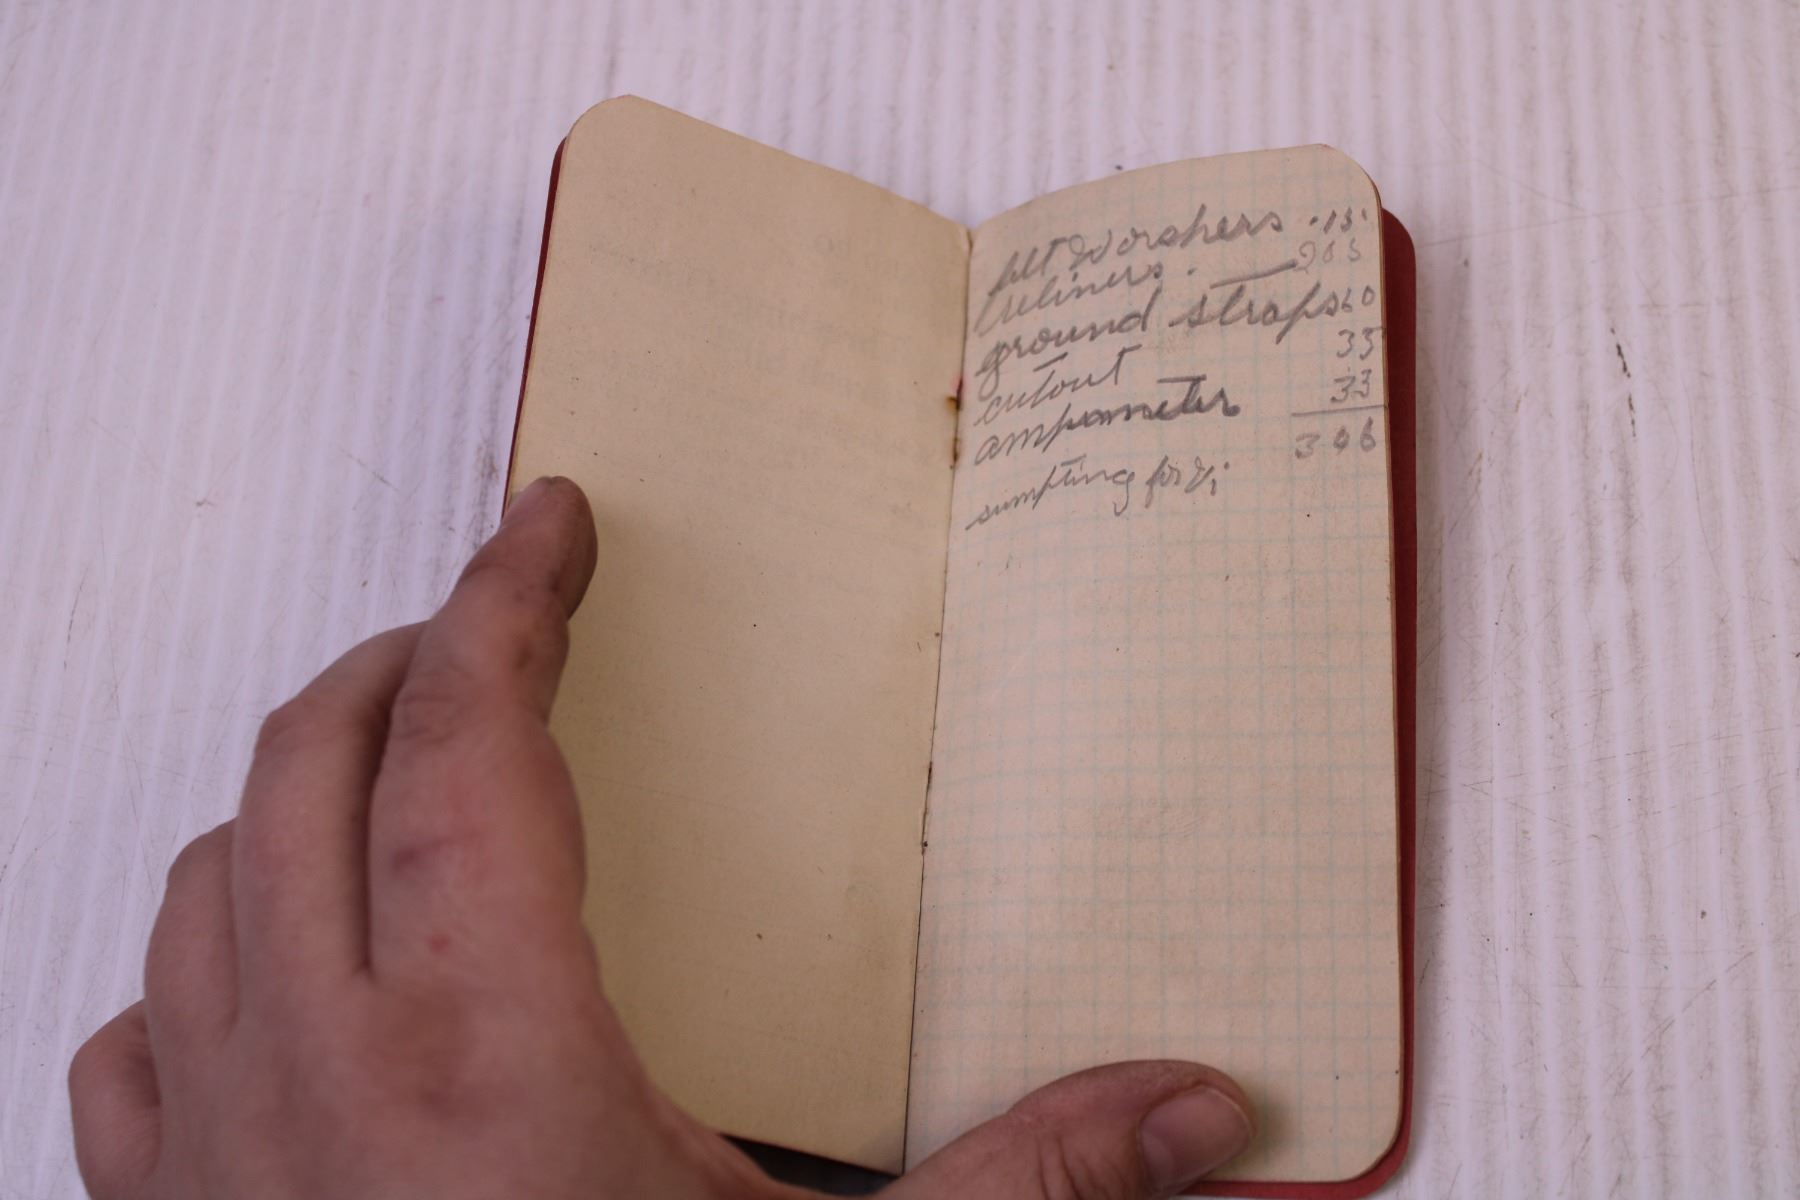 felt Washers .15
reliners. 205
ground straps 60
cutout 33
ampameter 33
346
sumpting for Vi